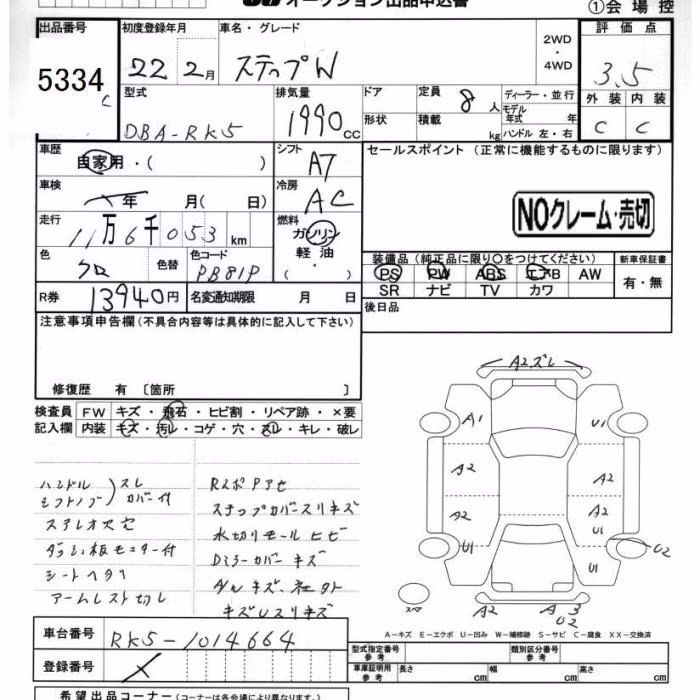 オークション出品申込書
①会場控
出品番号 初度登録年月 車名・グレード 2WD・4WD 評価点
5334 22 2月 ステップW 3.5
C
型式 排気量 ドア 定員 8人 ディーラー・並行 外装 内装
DBA-RK5 1990cc 形状 積載 kg モデル年式 年 ハンドル 左・右 C C
車歴 自家用・( ) シフト AT セールスポイント (正常に機能するものに限ります)
車検 年 月( 日) 冷房 AC
NOクレーム・売切
走行 11万6千053km 燃料 ガソリン・軽油・( )
色 クロ 色替 色コード PB81P
装備品(純正品に限り○をつけてください) 新車保証書
PS PW ABS エアB AW 有・無
SR ナビ TV カワ
R券 13940円 名変通知期限 月 日 後日品
注意事項申告欄(不具合内容等は具体的に記入して下さい)
修復歴 有 〔箇所 〕
検査員 FW キズ・飛石・ヒビ割・リペア跡・×要
記入欄 内装 キズ・汚レ・コゲ・穴・スレ・キレ・破レ
ハンドル スレ
シフトノブ カバー付
ステレオ欠
ダッシュ板モニター付
シートヘタリ
アームレスト切レ
RスポPアセ
ステップカバースリキズ
水切リモールヒビ
Dミラーカバーキズ
A2ズレ
A1 U1
A2 A2
A2 A2
U1
U1 U1 U2
スペア A2 A3
U2
A-キズ E-エクボ U-凹み W-補修跡 S-サビ C-腐食 XX-交換済
車台番号 RK5-1014664
登録番号
型式指定番号 参考 類別区分番号 参考
車庫証明用 参考 長さ cm 幅 cm 高さ cm
希望出品コーナー(コーナーは各会場により異なります。)